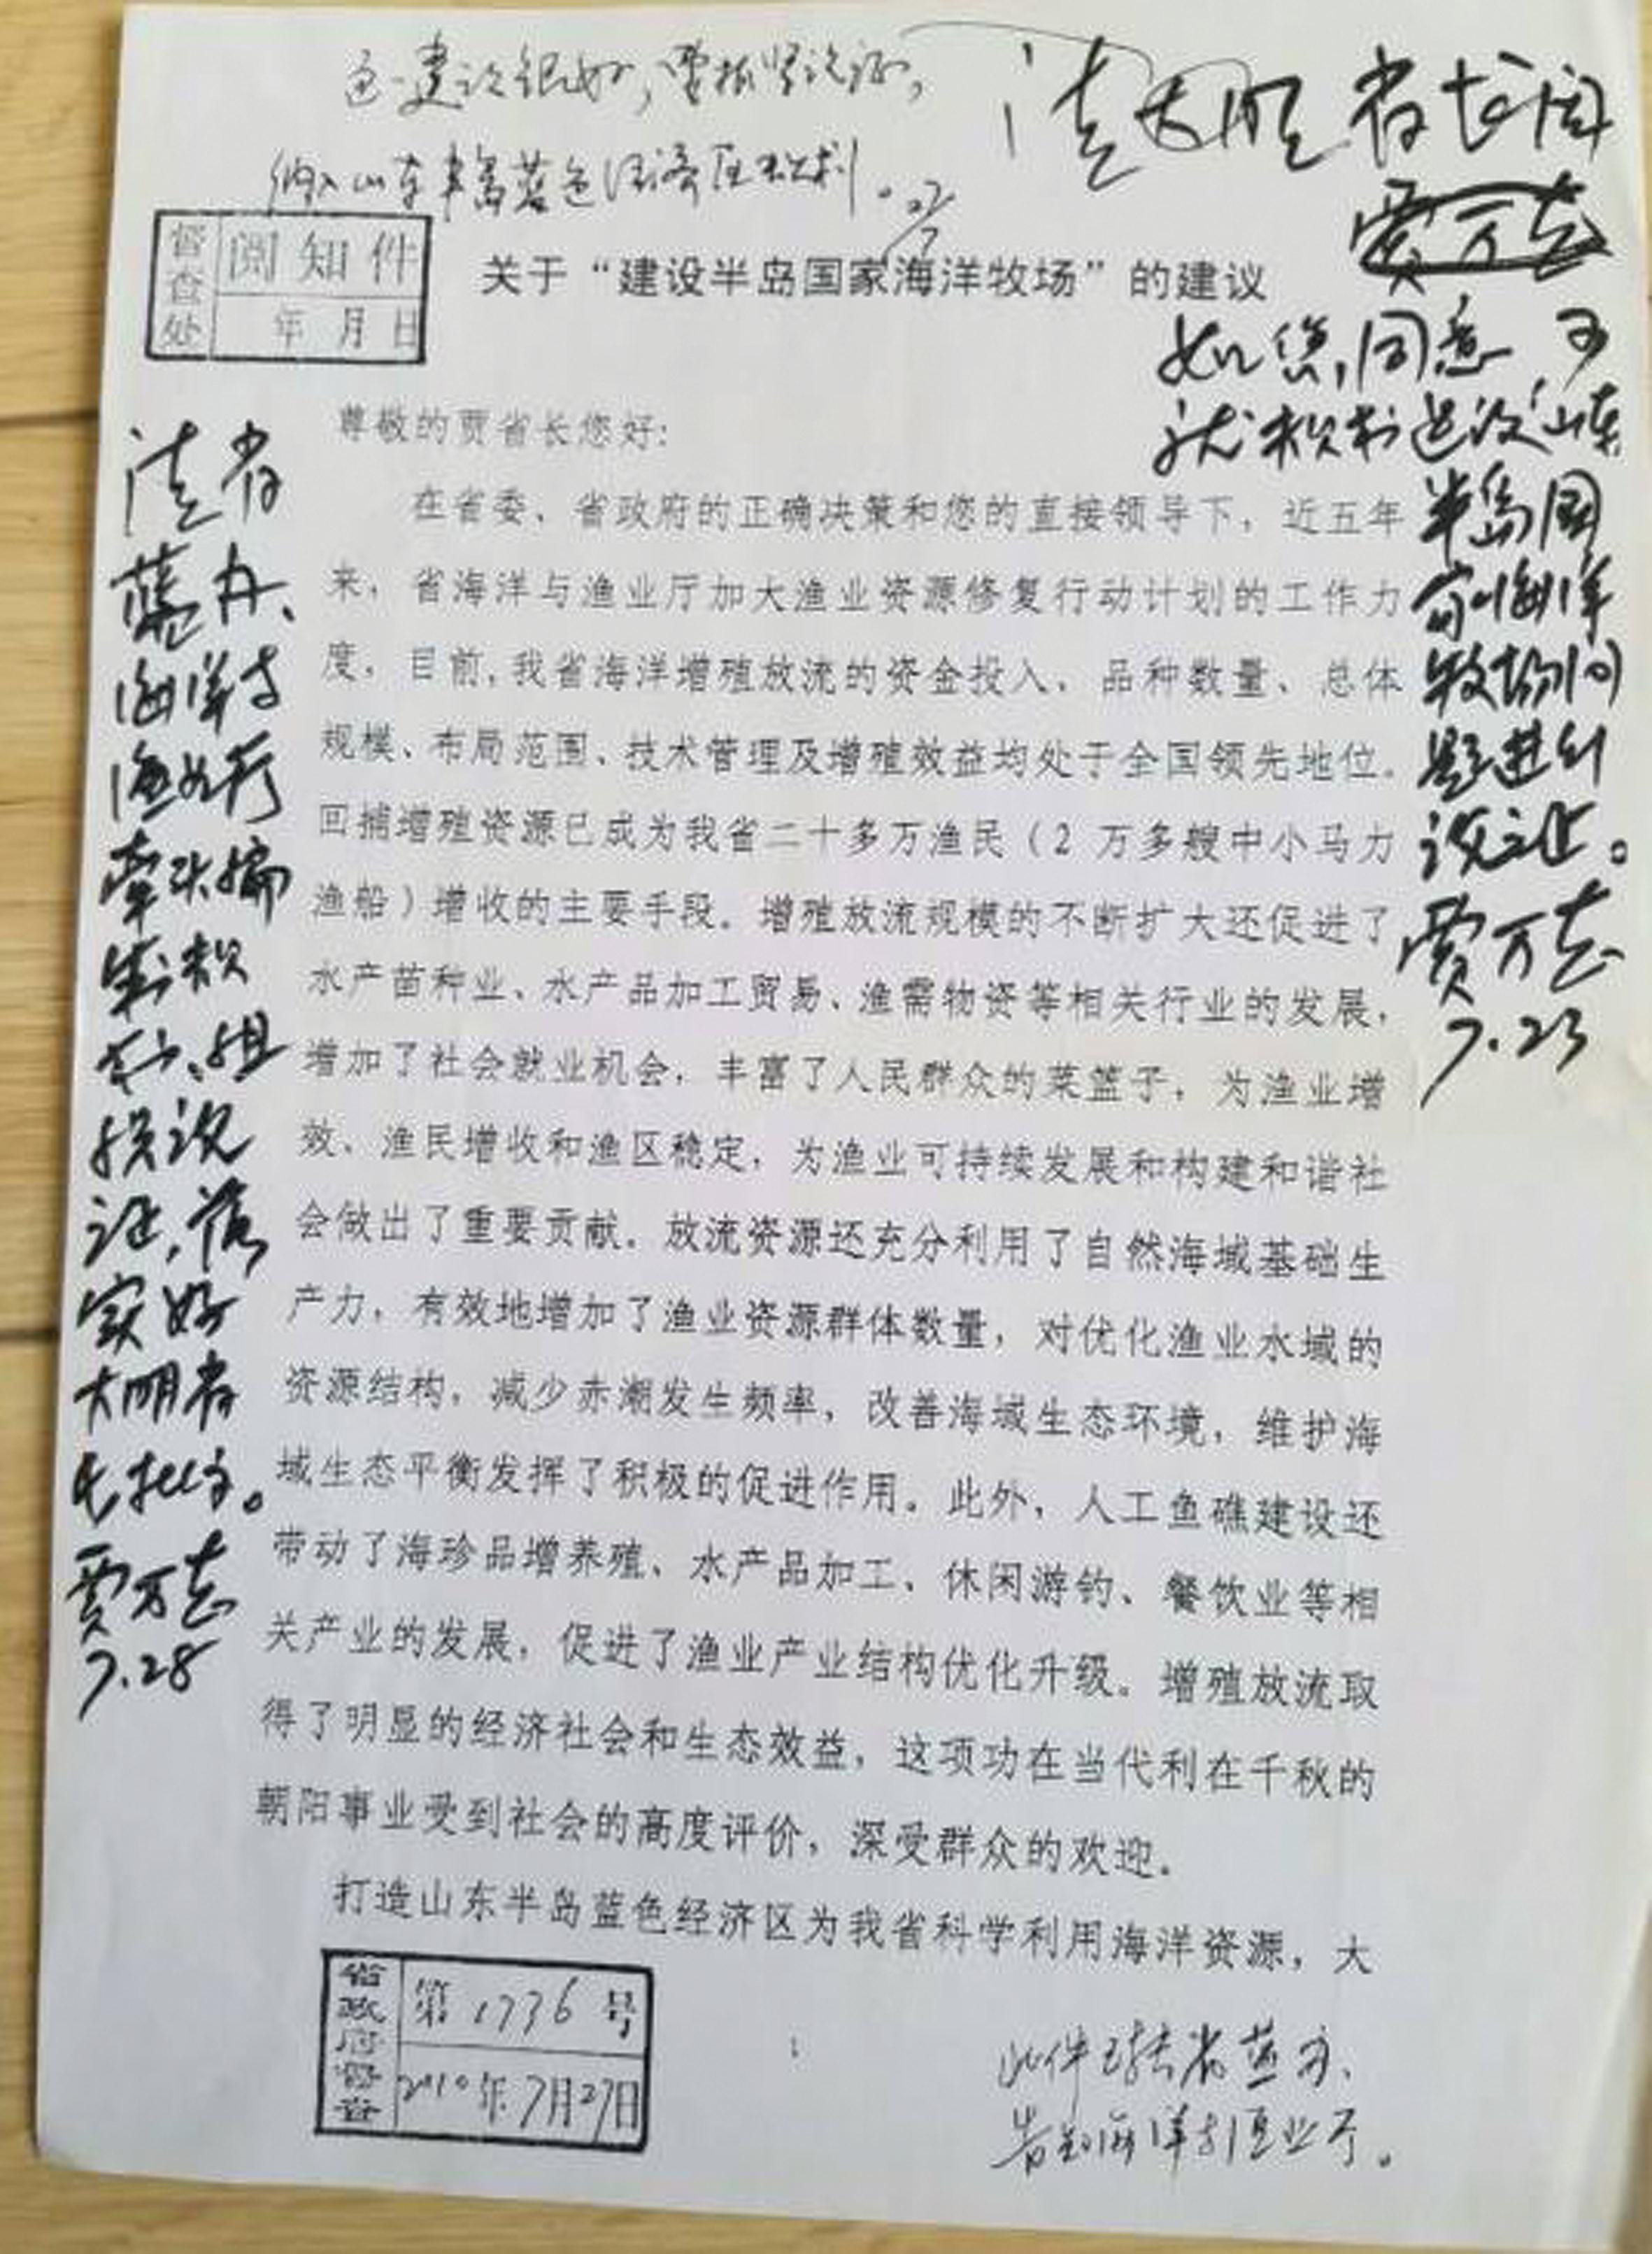 这一建议很好，要抓紧论证，
纳入山东半岛蓝色经济区规划。27/7
请大明省长阅
贾万志
如您同意 可
就积极建设“山东
半岛国
家海洋
牧场”问
题进行
论证。
贾万志
7.23
督查处
阅知件
年 月 日
关于“建设半岛国家海洋牧场”的建议
请省
蓝办、
海洋与
渔业厅
牵头编
制规
划、组
织论
证，落
实好
大明省
长批示。
贾万志
7.28
尊敬的贾省长您好：
在省委、省政府的正确决策和您的直接领导下，近五年
来，省海洋与渔业厅加大渔业资源修复行动计划的工作力
度，目前，我省海洋增殖放流的资金投入、品种数量、总体
规模、布局范围、技术管理及增殖效益均处于全国领先地位。
回捕增殖资源已成为我省二十多万渔民（2 万多艘中小马力
渔船）增收的主要手段。增殖放流规模的不断扩大还促进了
水产苗种业、水产品加工贸易、渔需物资等相关行业的发展，
增加了社会就业机会，丰富了人民群众的菜篮子，为渔业增
效、渔民增收和渔区稳定，为渔业可持续发展和构建和谐社
会做出了重要贡献。放流资源还充分利用了自然海域基础生
产力，有效地增加了渔业资源群体数量，对优化渔业水域的
资源结构，减少赤潮发生频率，改善海域生态环境，维护海
域生态平衡发挥了积极的促进作用。此外，人工鱼礁建设还
带动了海珍品增养殖、水产品加工、休闲游钓、餐饮业等相
关产业的发展，促进了渔业产业结构优化升级。增殖放流取
得了明显的经济社会和生态效益，这项功在当代利在千秋的
朝阳事业受到社会的高度评价，深受群众的欢迎。
打造山东半岛蓝色经济区为我省科学利用海洋资源，大
省政府督查
第 1736 号
2010年7月27日
此件已转省蓝办、
省海洋与渔业厅。